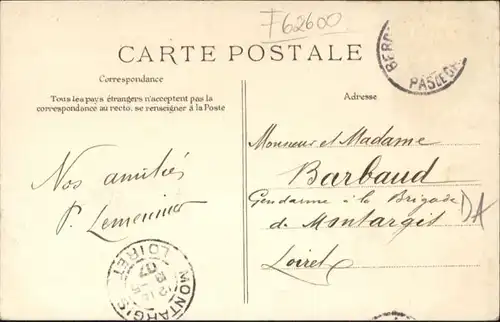 F62600
CARTE POSTALE
BERC
PAS DE C
Correspondance
Tous les pays étrangers n'acceptent pas la
correspondance au recto, se renseigner à la Poste
Adresse
Monsieur et Madame
Barbaud
Gendarme à la Brigade
de Montargis
Loiret
DA
Nos amitiés
P. Lemeunier
MONTARGIS
LOIRET
07